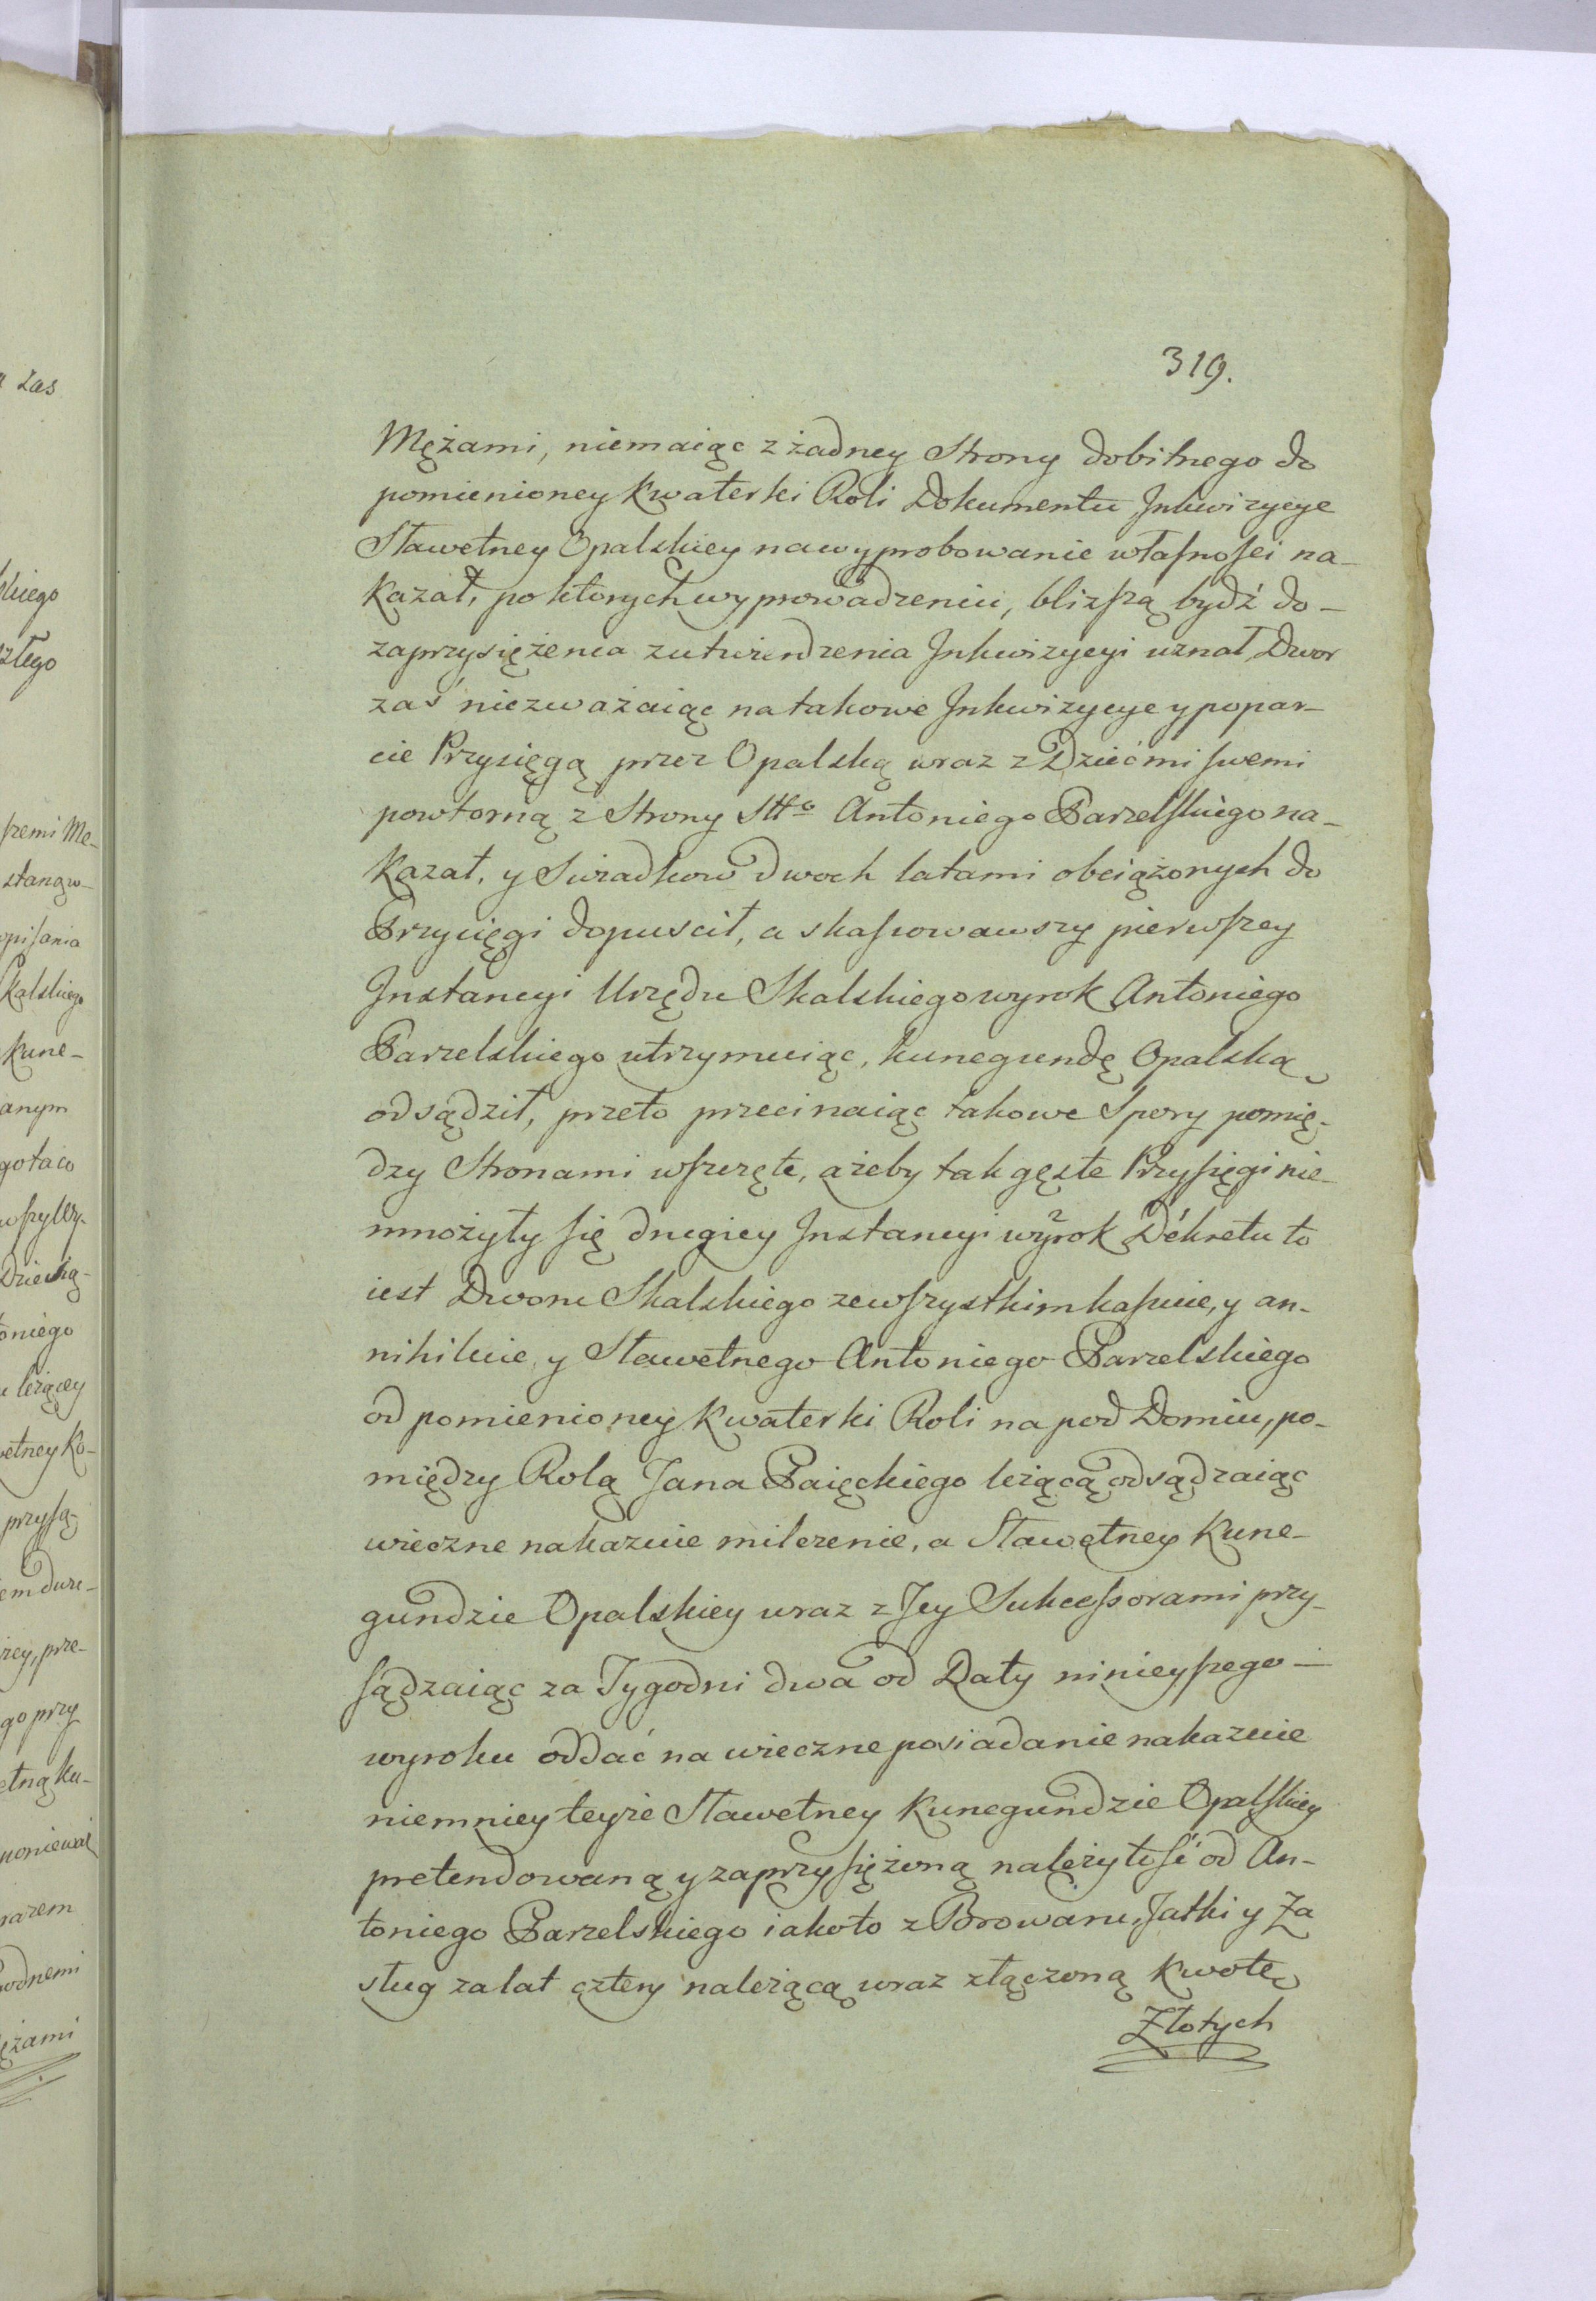 319.
Mężami, niemaiąc z żadney Strony dobitnego do
pomienioney Kwaterki Roli Dokumentu, Jnkwizycye
Sławetney Opalskiey na wyprobowanie własnosci na-
kazał, po ktorych wyprowadzeniu, bliższą bydź do-
zaprzysiężenia zutwierdzenia Jnkwizycyi uznał, Dwor
zaś niezważaiąc na takowe Jnkwizycye y popar-
cie Przysięgą przez Opalską wraz z Dziećmi swemi
powtorną z Strony Sttgo Antoniego Parzelskiego na-
kazał, y Swiadkow dwoch latami obciążonych do
Przysięgi dopuscił, a skassowawszy pierwszey
Jnstancyi Urzędu Skalskiego wyrok Antoniego
Parzelskiego utrzymuiąc, kunegundę Opalską
odsądził, przeto przecinaiąc takowe Spory pomię-
dzy Stronami wszczęte, ażeby tak gęste Przysięgi nie-
mnożyły się drugiey Jnstancyi wyrok Dekretu to
iest Dworu Skalskiego zewszystkim kassuie, y an-
nihiluie, y Sławetnego Antoniego Parzelskiego
od pomienioney Kwaterki Roli na pod Domiu, po-
między Rolą Jana Paięckiego leżącą odsądzaiąc
wieczne nakazuie milczenie, a Sławętney Kune-
gundzie Opalskiey wraz z Jey Sukcessorami przy-
sądzaiąc za Tygodni dwa od Daty ninieyszego –
wyroku oddać na wieczne posiadanie nakazuie
niemniey teyże Sławetney Kunegundzie Opalskiey
pretendowaną y zaprzysiężoną należytość od An-
toniego Parzelskiego iakoto z Browaru, Jatki y Za
sług za lat cztery należącą wraz złączoną Kwotę
Złotych